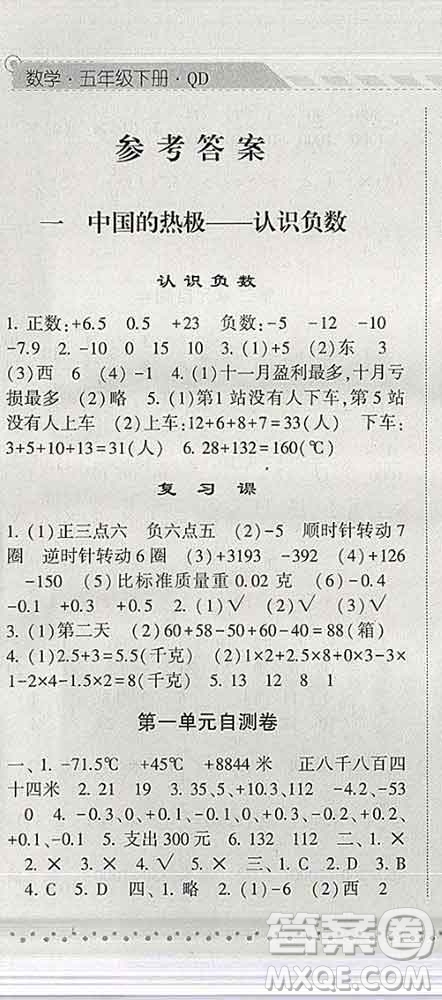 数学·五年级下册·QD
参考答案
一 中国的热极——认识负数
认识负数
1. 正数:+6.5 0.5 +23 负数:-5 -12 -10
-7.9 2. -10 0 15 10 3. (1)+5 (2)东 3
(3)西 6 (4)-1 4. (1)十一月盈利最多,十月亏
损最多 (2)略 5. (1)第1站没有人下车,第5站
没有人上车 (2)上车:12+6+8+7=33(人) 下车:
3+5+10+13=31(人) 6. 28+132=160(℃)
复习课
1. (1)正三点六 负六点五 (2)-5 顺时针转动7
圈 逆时针转动6圈 (3)+3193 -392 (4)+126
-150 (5)比标准质量重0.02克 (6)-0.4
-0.1 +0.3 +0.4 2. (1)√ (2)√ (3)√
3. (1)第二天 (2)60+58-50+60-40=88(箱)
4. (1)2.5+3=5.5(千克) (2)1×2+2.5×2-0.8-3×
1-2×4-1.5×2=5.2(千克) 5. 13 12 8 1
第一单元自测卷
一、1. -71.5℃ +45℃ +8844米 正八千八百四
十四米 2. 21 19 3. 13.5,+27,+6 -4.2,-53
0 4. -0.2,+0.1,-0.1,+0.1,-0.3,-0.2,+0.2,
+0.1,-0.1 5. 支出300元 6. 132 112 二、1. ×
2. × 3. × 4. √ 5. × 三、1. B 2. D 3. B
4. C 5. D 四、1. 略 2. (1)-6 (2)西 2
答案圈
MXQE.COM